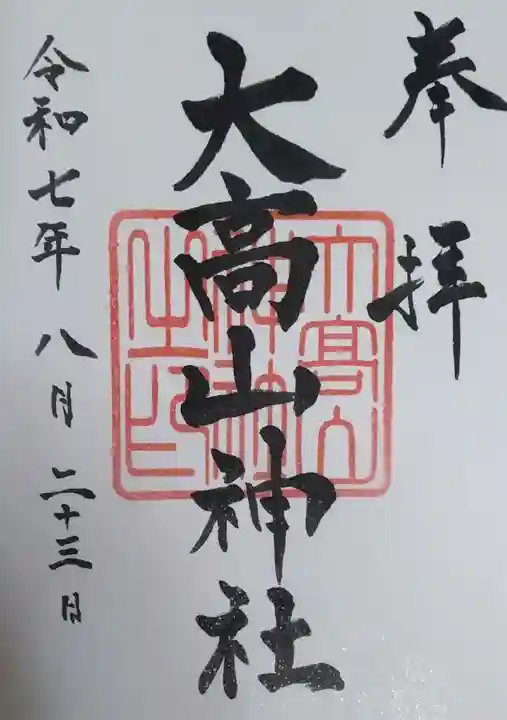 奉拝
大高山神社
大高山
神社
之印
令和七年八月二十三日